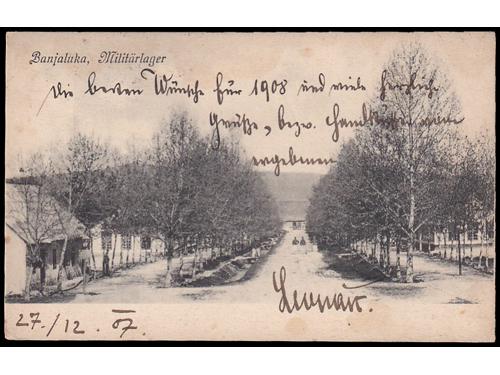 Banjaluka, Militärlager
Die besten Wünsche für 1908 und viele herzliche
Grüße, bezw. Handküsse vom
ergebenen
27./12. 07.